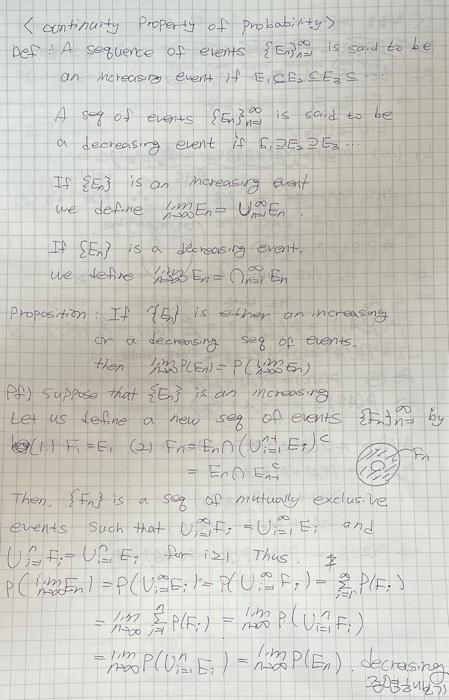 < continuity Property of probability >
Def : A sequence of events {En}∞n=1 is said to be
an increasing event if E1⊆E2⊆E3⊆
A seq of events {En}∞n=1 is said to be
a decreasing event if E1⊇E2⊇E3...
If {En} is an increasing event
we define lim n→∞ En = ∪∞n=1 En
If {En} is a decreasing event.
we define lim n→∞ En = ∩∞n=1 En
Proposition : If {En} is either an increasing
or a decreasing seq of events.
then lim n→∞ P(En) = P(lim n→∞ En)
Pf) Suppose that {En} is an increasing
Let us define a new seq of events {Fn}∞n=1 by
(1) F1 = E1 (2) Fn = En∩(∪n-1i=1 Ei)c
Fn
= En∩Ecn-1
Then, {Fn} is a seq of mutually exclusive
events such that ∪∞i=1 Fi = ∪∞i=1 Ei and
∪ni=1 Fi = ∪ni=1 Ei for i≥1 Thus.
P(lim n→∞ En) = P(∪∞i=1 Ei) = P(∪∞i=1 Fi) = ∑∞i=1 P(Fi)
= lim n→∞ ∑ni=1 P(Fi) = lim n→∞ P(∪ni=1 Fi)
= lim n→∞ P(∪ni=1 Ei) = lim n→∞ P(En). decreasing